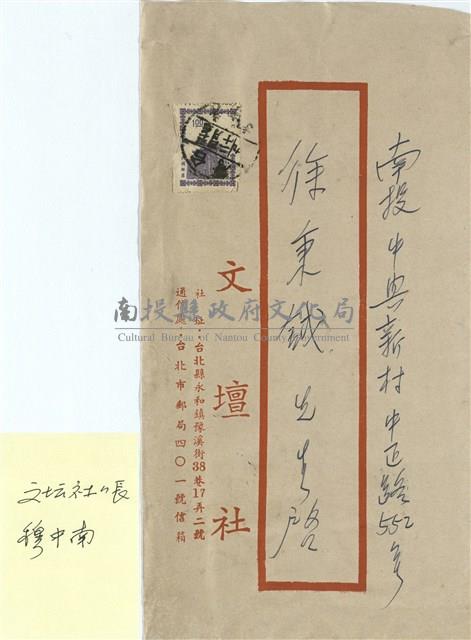 南投中興新村中正路552号
徐秉鉞先生啓
文壇社
社址：台北縣永和鎮豫溪街38巷17弄二號
通信處：台北市郵局四〇一號信箱
南投縣政府文化局
Cultural Bureau of Nantou County Government
文坛社社長
穆中南